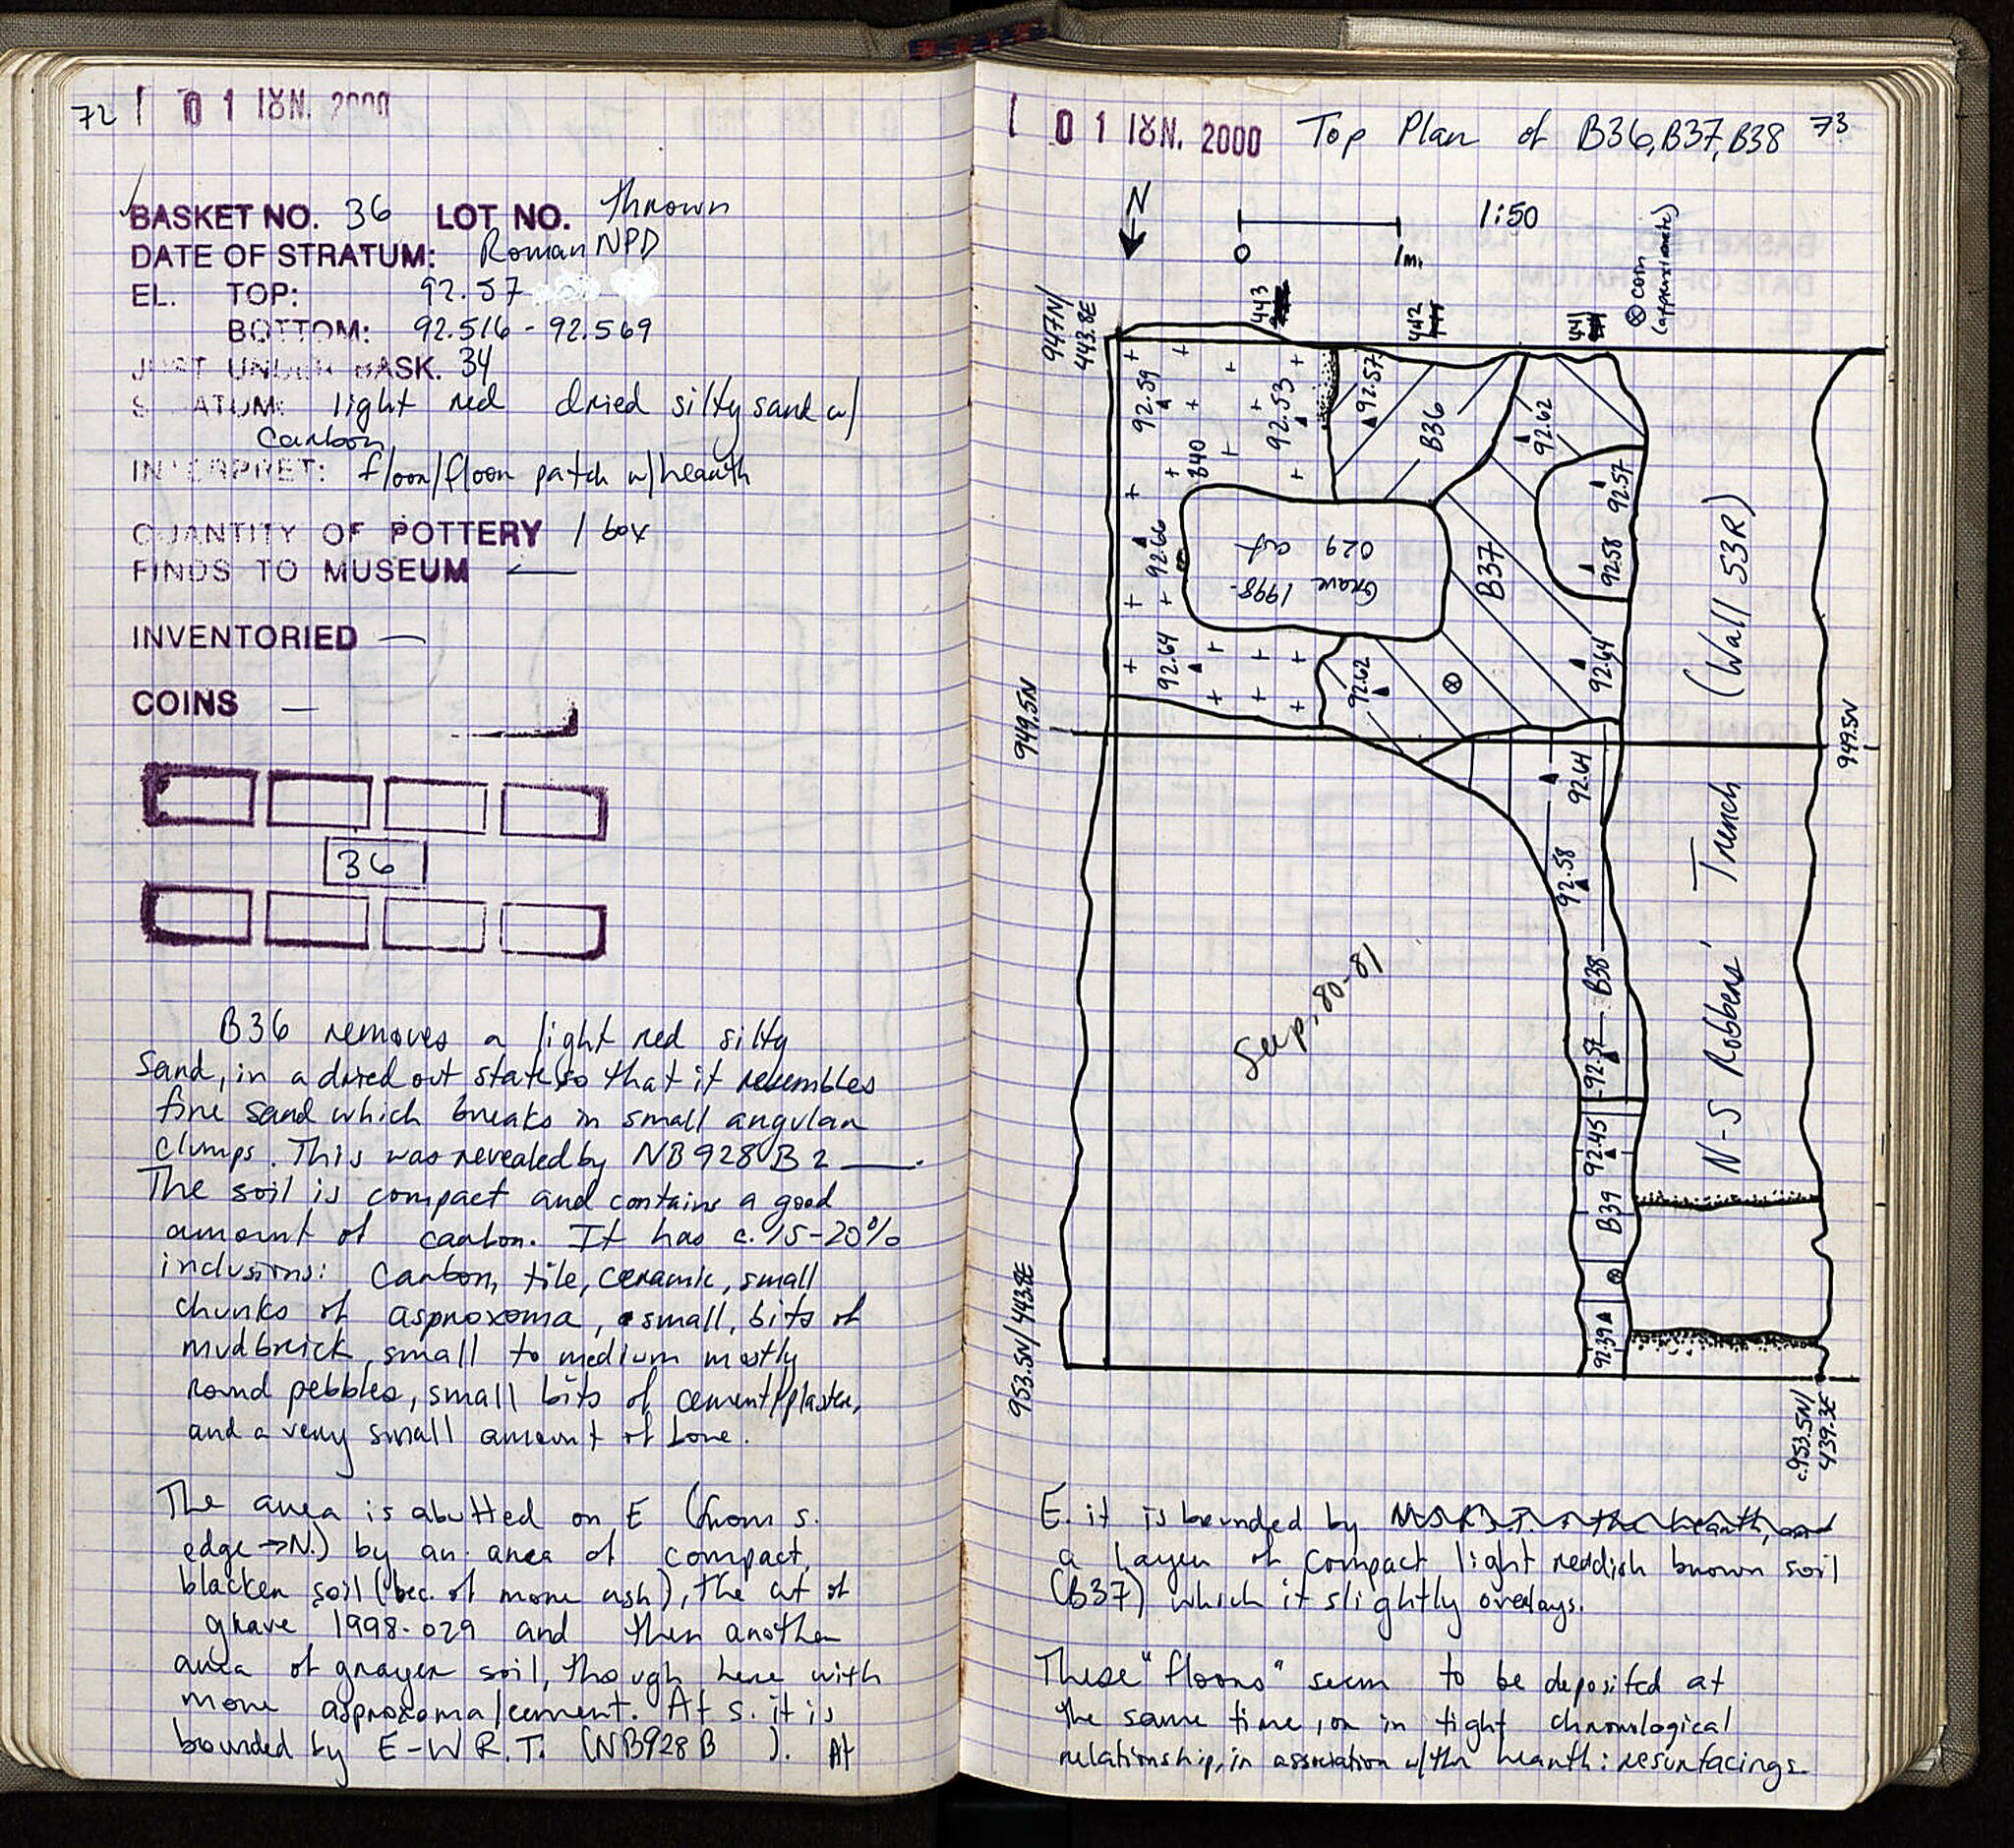 72 01 ΙΟΥΝ. 2000
BASKET NO. 36 LOT NO. Thrown
DATE OF STRATUM: Roman NPD
EL. TOP: 92.57
BOTTOM: 92.516 - 92.569
JUST UNDER BASK. 34
STRATUM: light red dried silty sand w/
carbon
INTERPRET: floor/floor patch w/hearth
QUANTITY OF POTTERY 1 box
FINDS TO MUSEUM —
INVENTORIED —
COINS —
36
B36 removes a light red silty
sand, in a dried out state so that it resembles
fine sand which breaks in small angular
clumps. This was revealed by NB928 B2 ___.
The soil is compact and contains a good
amount of carbon. It has c. 15-20%
inclusions: Carbon, tile, ceramic, small
chunks of asproxoma, small, bits of
mudbrick, small to medium mostly
round pebbles, small bits of cement/plaster,
and a very small amount of bone.
The area is abutted on E (from s.
edge → N.) by an area of compact,
blacker soil (bec. of more ash), the cut of
grave 1998-029 and then another
area of grayer soil, though here with
more asproxoma/cement. At s. it is
bounded by E-W R.T. (NB928 B ). At
01 ΙΟΥΝ. 2000 Top Plan of B36, B37, B38 73
N
0 1m.
1:50
⊗ coin
(approximate)
947N/
443.8E
443
442
441
92.59
92.53
92.57
B36
92.62
B40
92.57
92.66
Grave 1998-
029 cut
B37
92.58
92.64
92.62
92.64
(Wall 53R)
949.5N
949.5N
92.64
92.58
B38
92.57
Sup. 80-81
N-S Robbers' Trench
92.45
B39
92.39
953.5N/443.8E
c.953.5N/
439.3E
E. it is bounded by
a layer of compact light reddish brown soil
(B37) which it slightly overlays.
These "floors" seem to be deposited at
the same time, or in tight chronological
relationship, in association w/the hearth: resurfacings.